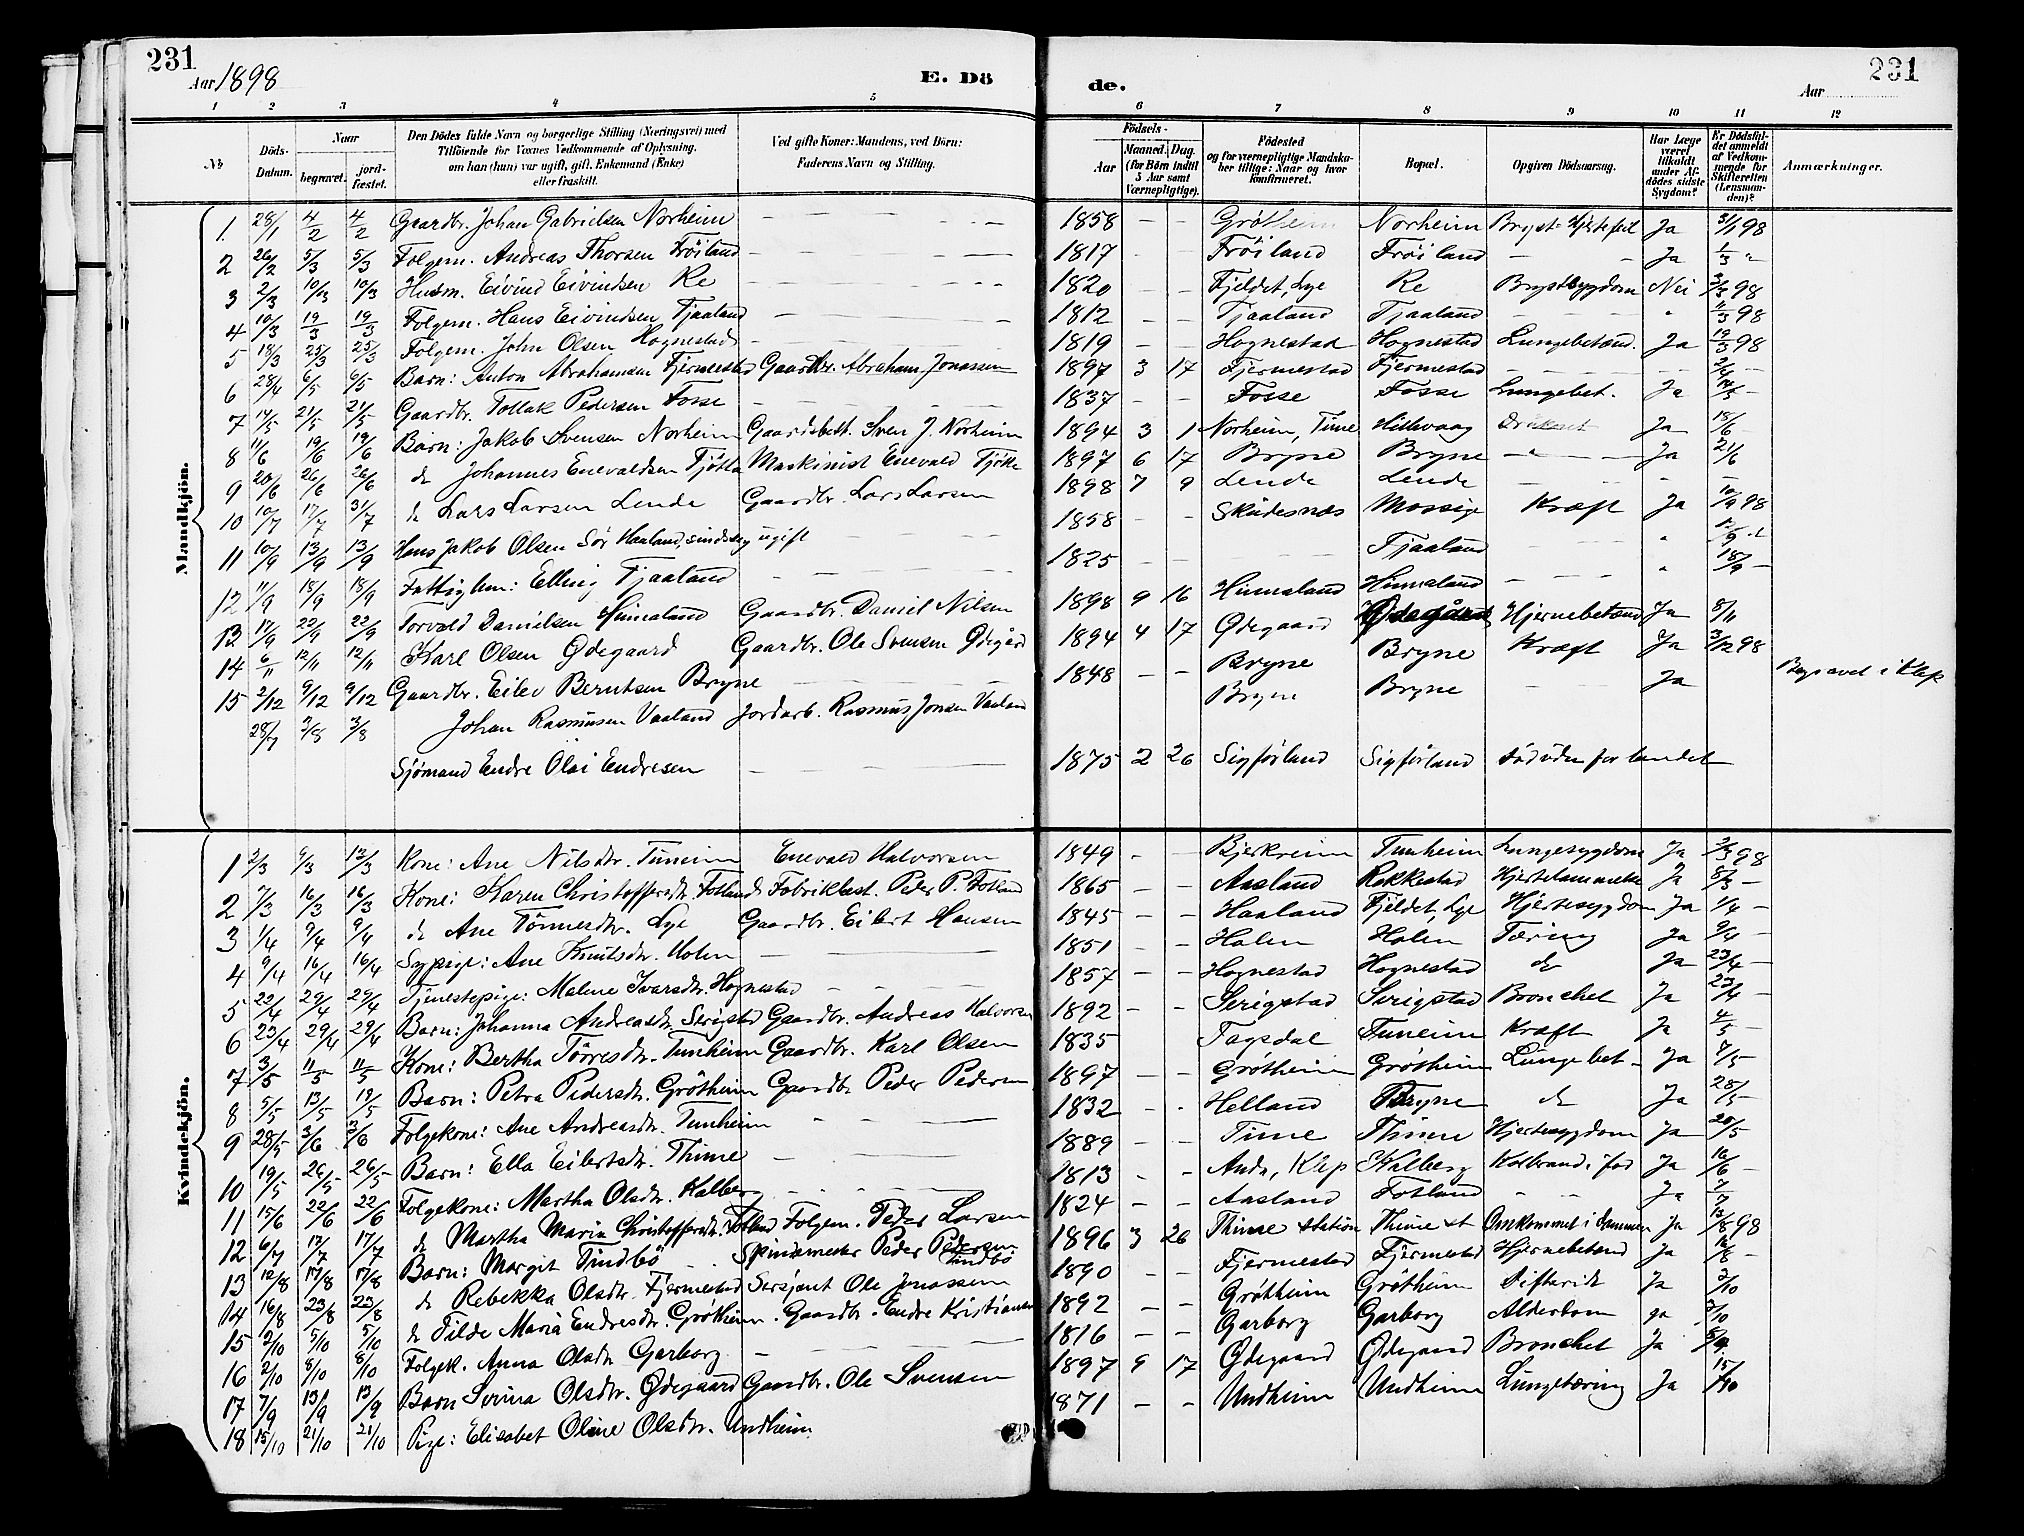 231
Aar 1898
E. Dö
de.
231
Aar
1 2 3 4 5 6 7 8 9 10 11 12
No
Döds-Datum.
Naar
begravet.
jord-fæstet.
Den Dödes fulde Navn og borgerlige Stilling (Næringsvei) med
Tilföiende for Voxnes Vedkommende af Oplysning,
om han (hun) var ugift, gift, Enkemand (Enke)
eller fraskilt.
Ved gifte Koner: Mandens, ved Börn:
Faderens Navn og Stilling.
Födsels-
Aar
Maaned. Dag.
(for Börn indtil
5 Aar samt
Værnepligtige).
Födested
og for værnepligtige Mandska-
ber tillige: Naar og hvor
konfirmeret.
Bopæl.
Opgiven Dödsaarsag.
Har Læge
været
tilkaldt
under Af-
dödes sidste
Sygdom?
Er Dödsfal-
det anmeldt
af Vedkom-
mende for
Skifteretten
(Lensman-
den)?
Anmærkninger.
Mandkjön.
1. 28/1 4/2 4/2 Gaardbr. Johan Gabrielsen Norheim — — — 1858 — — Norheim Bryst- Ja 31/1 98
2 26/2 5/3 5/3 Folgem. Andreas Thorsen Fröiland — — — 1817 - - Fröiland Fröiland — - Ja 1/3 "
3 2/3 10/3 10/3 Husm. Eivind Eivindsen Re — — — 1820 - - Fjeldet, Lye Re Brystsygdom Nei 3/3 98
4 10/3 19/3 19/3 Folgem. Hans Eivindsen Tjaaland — — — 1812 — — Tjaaland Tjaaland — — " 11/3 98
5 18/3 25/3 25/3 Folgem. John Olsen Hognestad — 1819 — — Hognestad Hognestad Lungebetænd. Ja 19/3 98
6 28/4 6/5 6/5 Barn: Anton Abrahamsen Fjermestad Gaardbr. Abraham Jonassen 1897 3 17 Fjermestad Fjermestad — — —
7 14/5 21/5 21/5 Gaardbr. Tollak Pedersen Fosse — — 1837 - - Fosse Fosse Lungebet. Ja 14/5 -
8 11/6 19/6 19/6 Barn: Jakob Svensen Norheim Gaardsbest. Sven J. Norheim 1894 3 1 Norheim, Time Ja 18/6 -
9 20/6 26/6 26/6 do Johannes Enevaldsen Tjötta Maskinist Enevald Tjötta 1897 6 17 Bryne Bryne — " — Ja 21/6
10 10/7 17/7 31/7 do Lars Larsen Lende Gaardbr. Lars Larsen 1898 7 9 Lende Lende — —
11 10/9 13/9 13/9 Hans Jakob Olsen Sör Haaland, sindssyg ugift — — 1858 - - Skudesnæs Mossige Kræft Ja 10/9 98
12 11/9 18/9 18/9 Fattiglem: Elling Tjaaland — — — 1825 — — Tjaaland — — "
13 17/9 22/9 22/9 Torvald Danielsen Himaland Gaardbr. Daniel Nilsen 1898 9 16 Himaland Himaland — — " 18/9 —
14 6/11 12/11 12/11 Karl Olsen Ødegaard Gaardbr. Ole Svensen Ødegård 1894 4 17 Ødegaard Ødegård Hjernebetænd Ja 8/11
15 2/12 9/12 9/12 Gaardbr. Eilev Berntsen Bryne — — — 1848 — — Bryne Bryne Kræft Ja 3/12 98
28/7 3/8 3/8 Johan Rasmusen Vaaland Jordarb. Rasmus Jonsen Vaaland Bryne Bryne — — Ja Begravet i Klep
Sjömand Endre Olai Endresen — — — 1875 2 26 Sigförland Sigförland död udenfor landet
Kvindekjön.
1 2/3 9/3 12/3 Kone: Ane Nilsdtr. Tuneim Enevald Halvorsen 1849 - - Bjerkreim Tunheim Lungesygdom Ja 3/3 98
2 7/3 16/3 16/3 Kone: Karen Christoffersdtr. Fotland Fabrikbest. Peder P. Fotland 1865 — — Aasland Rokkestad Hjertelammelse Ja 8/3 —
3 1/4 9/4 9/4 do Ane Tönnesdtr. Lye Gaardbr. Eilert Hansen 1845 - - Haaland Fjeldet, Lye Hjertesygdom Ja 1/4 —
4 9/4 16/4 16/4 Sypige: Ane Knutsdtr. Holen — — 1851 - - Holen Holen Tæring Ja 9/4 —
5 22/4 29/4 29/4 Tjenestepige: Malene Ivarsdtr. Hognestad — — 1857 — — Hognestad Hognestad do Ja 23/4 —
6 23/4 29/4 29/4 Barn: Johanna Andreasdtr. Serigstad Gaardbr. Andreas Halvorsen 1892 - - Serigstad Serigstad Bronchet Ja 23/4 —
7 3/5 11/5 11/5 Kone: Bertha Törresdtr. Tunheim Gaardbr. Karl Olsen 1835 Tagsdal Tuneim Kræft Ja 4/5 —
8 5/5 13/5 13/5 Barn: Petra Pedersdtr. Grötheim Gaardbr Peder Pedersen 1897 — - Grötheim Grötheim Lungebet - Ja 7/5
9 28/5 3/6 3/6 Folgekone: Ane Andreasdtr. Tunheim - - — 1832 — - Helland Bryne do Ja 28/5 -
10 19/5 26/5 26/5 Barn: Ella Eilertsdtr. Thime - — — 1889 — - Time Thime Hjertesygdom Ja 20/5
11 15/6 22/6 22/6 Folgekone: Martha Olsdtr. Kalberg - — - — 1813 - - Anda, Klep Kalberg Koldbrand i fod Ja 16/6 —
12 6/7 13/7 17/7 do Martha Maria Christoffersdtr. Fotland Folgem. Peder Larsen 1824 — - Aasland Fotland - - Ja 7/7
13 12/8 17/8 17/8 Barn: Margit Tindbö Spindemester Peder Pedersen Tindbö 1896 3 26 Thime station Thime st Omkommet i dammen Ja 13/8 98
14 16/8 23/8 23/8 do Rebekka Olsdtr. Fjermestad Sersjant Ole Jonassen 1890 - - Fjermestad Fjermestad Hjernebetænd Ja
15 2/10 5/10 5/10 do Tilde Maria Endresdtr. Grötheim. Gaardbr. Endre Kristiansen 1892 — - Grötheim Grötheim Difterit Ja 3/10
16 2/10 8/10 8/10 Folgek. Anna Olsdtr Garborg — — 1816 — — Garborg Garborg Alderdom ja 3/10
17 7/9 13/9 13/9 Barn Serina Olsdtr. Ødegaard Gaardbr. Ole Svensen 1897 9 17 Ødegaard Ødegaard Bronchet Ja
18 15/10 21/10 21/10 Pige: Elisabet Oline Olsdtr. Undheim 1871 - - Undheim Undheim Lungetæring Ja 15/10